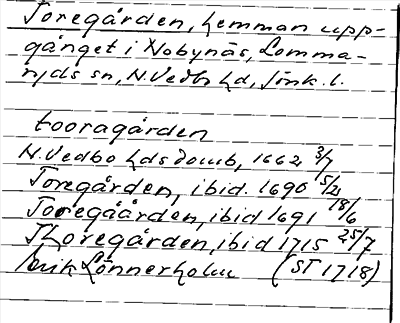 Toregården, hemman upp-
gånget i Nobynäs, Lomma-
ryds sn, N. Vedbo hd, Jönk. l.
tooragården
N. Vedbo hds domb, 1662 3/7
Toregården, ibid. 1690 5/21
Toregåården, ibid 1691 18/6
Thoregården, ibid 1715 25/7
Erik Lönnerholm (ST 1718)